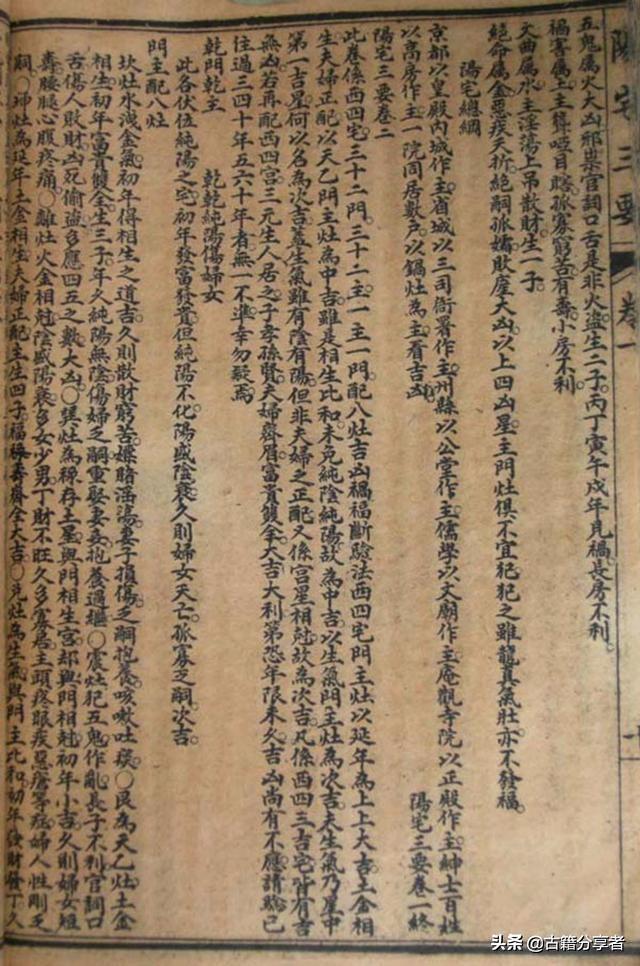 陽宅三要 卷一
五鬼屬火大凶邪祟官詞口舌是非火盜生二子丙丁寅午戌年見禍長房不利
禍害屬土主聾啞目瞎孤寡窮苦有壽小房不利
文曲屬水主淫蕩上吊散財生一子
絕命屬金惡疾夭折絕嗣孤孀敗產大凶以上四凶星主門灶俱不宜犯犯之雖龍真氣壯亦不發福
陽宅總綱
京都以皇殿內城作主省城以三司衙署作主州縣以公堂作主儒學以文廟作主庵觀寺院以正殿作主紳士百姓
以高房作主一院同居數戶以鍋灶為主看吉凶 陽宅三要卷一終
陽宅三要卷二
此卷係西四宅三十二門三十二主一主一門配八灶吉凶禍福斷驗法西四宅門主灶以延年為上上大吉土金相
生夫婦正配以天乙門主灶為中吉雖是相生比和未免純陰純陽故為中吉以生氣門主灶為次吉夫生氣乃星中
第一吉星何以名為次吉蓋生氣雖有陰有陽但非夫婦之正配又係宮星相尅故為次吉凡係西四三吉宅皆有吉
無凶若再配西四宮三元生人居之子孝孫賢夫婦齊眉富貴雙全大吉大利第恐年限未久吉凶尚有不應請驗已
往過三四十年五六十年者無一不準幸勿疑焉
乾門乾主 乾乾純陽傷婦女
此各伏位純陽之宅初年發富發貴但純陽不化陽盛陰衰久則婦女夭亡孤寡乏嗣次吉
門主配八灶
坎灶水洩金氣初年得相生之道吉久則散財窮苦嫖賭淫蕩妻子損傷乏嗣抱養咳嗽吐痰○艮為天乙灶土金
相生初年富貴雙全生三子年久純陽無陰傷婦乏嗣重娶妻妾抱養過繼○震灶犯五鬼作亂長子不利官詞口
舌傷人敗財凶死偷盜多應四五之數大凶○巽灶為祿存土星與門相生宮却與門相尅初年小吉久則婦女短
壽腰腿心腹疼痛○離灶火金相尅陰盛陽衰多女少男丁財不旺久多寡居主頭疼眼疾惡瘡等症婦人性剛乏
嗣○坤灶為延年土金相生夫婦正配主生四子福祿壽齊全大吉○兌灶為生氣與門主比和初年發財發丁久
头条 @古籍分享者